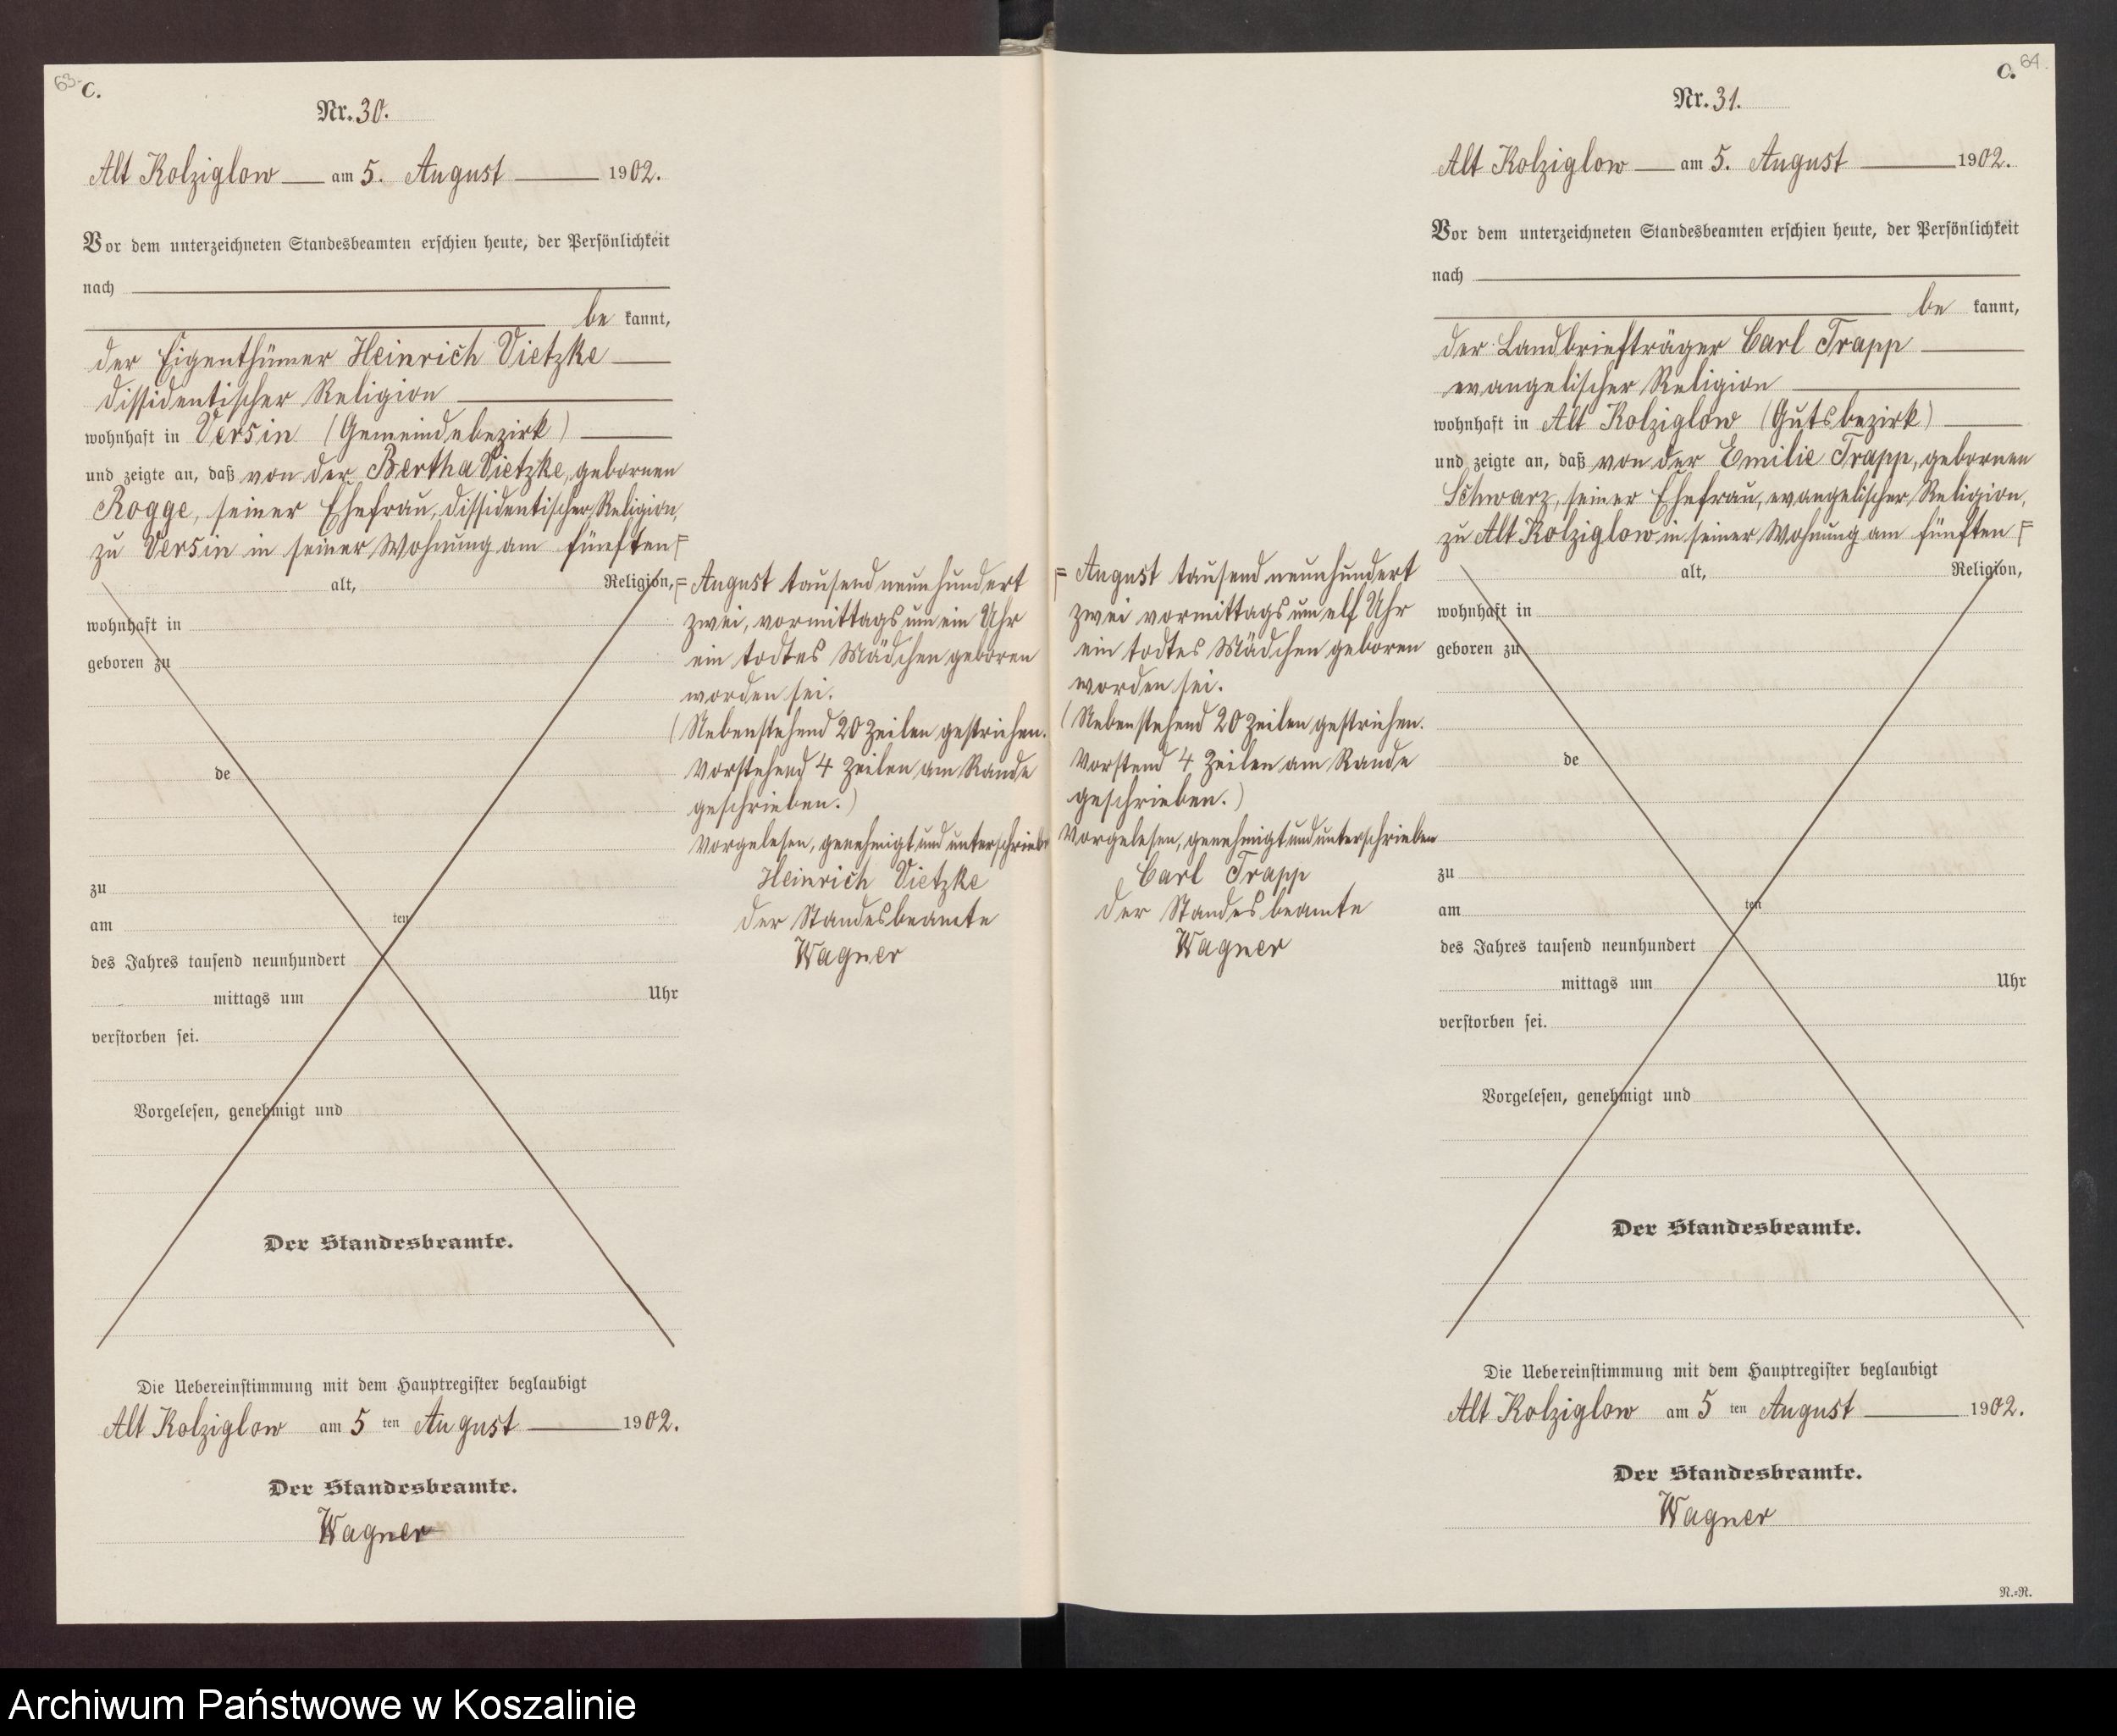 63.
C.
Nr. 30.
Alt Kolziglow am 5. August 1902.
Vor dem unterzeichneten Standesbeamten erschien heute, der Persönlichkeit
nach
be kannt,
der Eigenthümer Heinrich Vietzke
dissidentischer Religion
wohnhaft in Versin (Gemeindebezirk)
und zeigte an, daß von der Bertha Vietzke, gebornen
Rogge, seiner Ehefrau, dissidentischer Religion,
zu Versin in seiner Wohnung am fünften =
alt, Religion,
wohnhaft in
geboren zu
de
zu
am ten
des Jahres tausend neunhundert
mittags um Uhr
verstorben sei.
Vorgelesen, genehmigt und
Der Standesbeamte.
Die Uebereinstimmung mit dem Hauptregister beglaubigt
Alt Kolziglow am 5 ten August 1902.
Der Standesbeamte.
Wagner
= August tausend neunhundert
zwei, vormittags um ein Uhr
ein todtes Mädchen geboren
worden sei.
(Nebenstehend 20 Zeilen gestrichen.
Vorstehend 4 Zeilen am Rande
geschrieben.)
Vorgelesen, genehmigt und unterschrieben
Heinrich Vietzke
Der Standesbeamte
Wagner
64.
C.
Nr. 31.
Alt Kolziglow am 5. August 1902.
Vor dem unterzeichneten Standesbeamten erschien heute, der Persönlichkeit
nach
be kannt,
der Landbriefträger Carl Trapp
evangelischer Religion
wohnhaft in Alt Kolziglow (Gutsbezirk)
und zeigte an, daß von der Emilie Trapp, gebornen
Schwarz, seiner Ehefrau, evangelischer Religion,
zu Alt Kolziglow in seiner Wohnung am fünften =
= August tausend neunhundert
zwei vormittags um elf Uhr
ein todtes Mädchen geboren
worden sei.
(Nebenstehend 20 Zeilen gestrichen.
Vorstend 4 Zeilen am Rande
geschrieben.)
Vorgelesen, genehmigt und unterschrieben
Carl Trapp
Der Standesbeamte
Wagner
alt, Religion,
wohnhaft in
geboren zu
de
zu
am ten
des Jahres tausend neunhundert
mittags um Uhr
verstorben sei.
Vorgelesen, genehmigt und
Der Standesbeamte.
Die Uebereinstimmung mit dem Hauptregister beglaubigt
Alt Kolziglow am 5 ten August 1902.
Der Standesbeamte.
Wagner
N.=R.
Archiwum Państwowe w Koszalinie